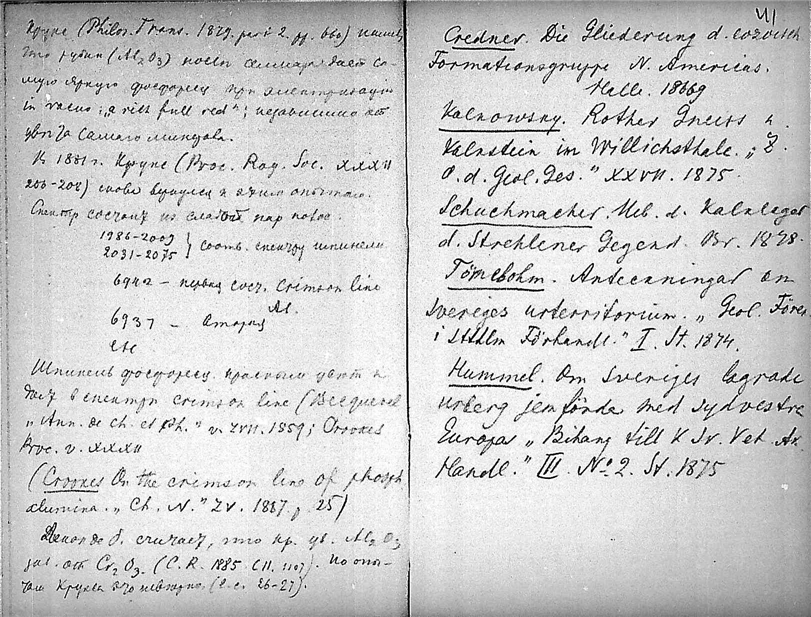 Крукс (Philos. Trans. 1879. part 2. pp. 660)
что рубин (Al₂O₃) после
мую яркую фосфоресц. при электризации
in vacuo: „a rich full red"; независимо от
цвета самого минерала.
К 1881 г. Крукс (Proc. Roy. Soc. XXXII
206-208) снова вернулся к этим опытам.
Спектр состоит из слабых пар полос.
1986-2009
2031-2075 } соотв. спектру шпинели
6942 – первая сост. Crimson line
Al.
6937 – вторая
etc
Шпинель фосфоресц. красным цветом и
дает в спектре crimson line (Becquerel
„Ann. de Ch. et Ph." v. LVII. 1859; Crookes
Proc. v. XXXII
(Crookes On the crimson line of phosph.
alumina. „Ch. N." LV. 1887. p. 25)
Лекок де Б. считает, что кр. цв. Al₂O₃
зав. от Cr₂O₃. (C.R. 1885 CII. 1107). По опы-
там Крукса это неверно (l.c. 26-27).
VII
Credner. Die Gliederung d. eozoisch
Formationsgruppe N. Americas.
Halle. 1869
Kalkowsky. Rother Gneiss u.
Kalkstein im Willichsthale. „Z.
d. d. Geol. Ges." XXVII. 1875.
Schuchmacher. Ueb. d. Kalklager
d. Strehlener Gegend. Br. 1878.
Törnebohm. Anteckningar om
Sveriges urterritorium. „Geol. Fören
i Stthlm Förhandl." I. St. 1874.
Hummel. Om Sveriges lagrade
urberg jemförda med sydvestra
Europas „Bihang till K Sv. Vet. Ak.
Handl." III. № 2. St. 1875